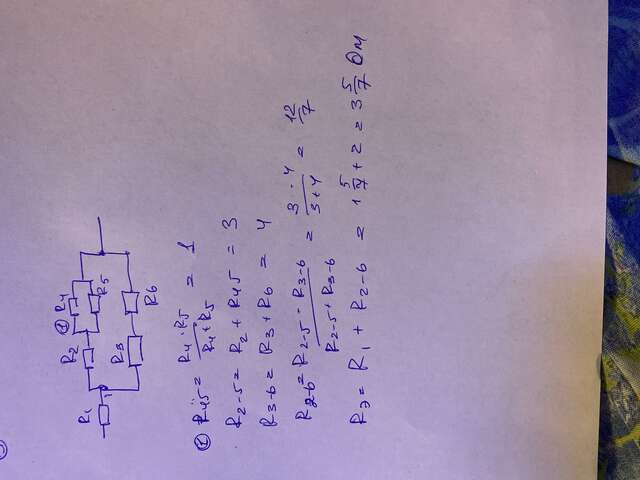 R₁ R₂ ① R₄ R₅
R₃ R₆
① R₄₅ = R₄ · R₅ / R₄ + R₅ = 1
R₂₋₅ = R₂ + R₄₅ = 3
R₃₋₆ = R₃ + R₆ = 4
R₂₋₆ = R₂₋₅ · R₃₋₆ / R₂₋₅ + R₃₋₆ = 3 · 4 / 3 + 4 = 12/7
Rэ = R₁ + R₂₋₆ = 1 5/7 + 2 = 3 5/7 Ом